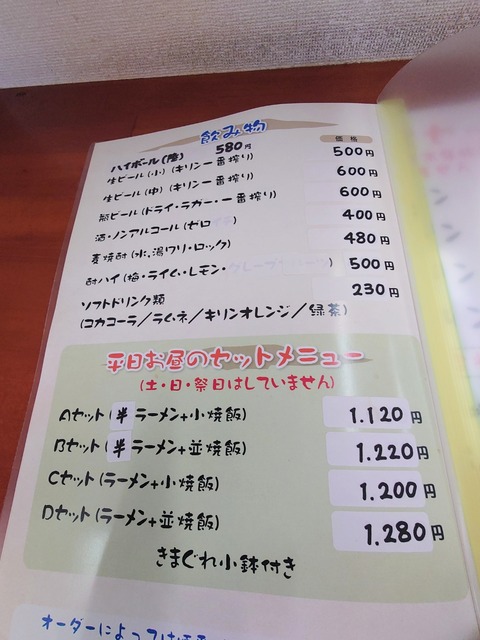 飲み物
価格
ハイボール(陸) 580円
生ビール(小)(キリン一番搾り) 500円
生ビール(中)(キリン一番搾り) 600円
瓶ビール(ドライ・ラガー・一番搾り) 600円
酒・ノンアルコール(ゼロ 400円
麦焼酎(水、湯ワリ・ロック) 480円
酎ハイ(梅・ライム・レモン・グレープフルーツ) 500円
ソフトドリンク類 230円
(コカコーラ/ラムネ/キリンオレンジ/緑茶)
平日お昼のセットメニュー
(土・日・祭日はしていません)
Aセット(半ラーメン+小焼飯) 1.120円
Bセット(半ラーメン+並焼飯) 1.220円
Cセット(ラーメン+小焼飯) 1.200円
Dセット(ラーメン+並焼飯) 1.280円
きまぐれ小鉢付き
オーダーによっては